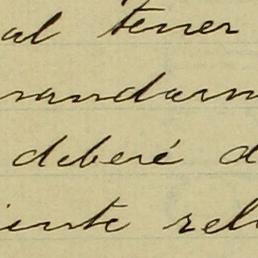 al tener
mandarm
deberé d
iente rel